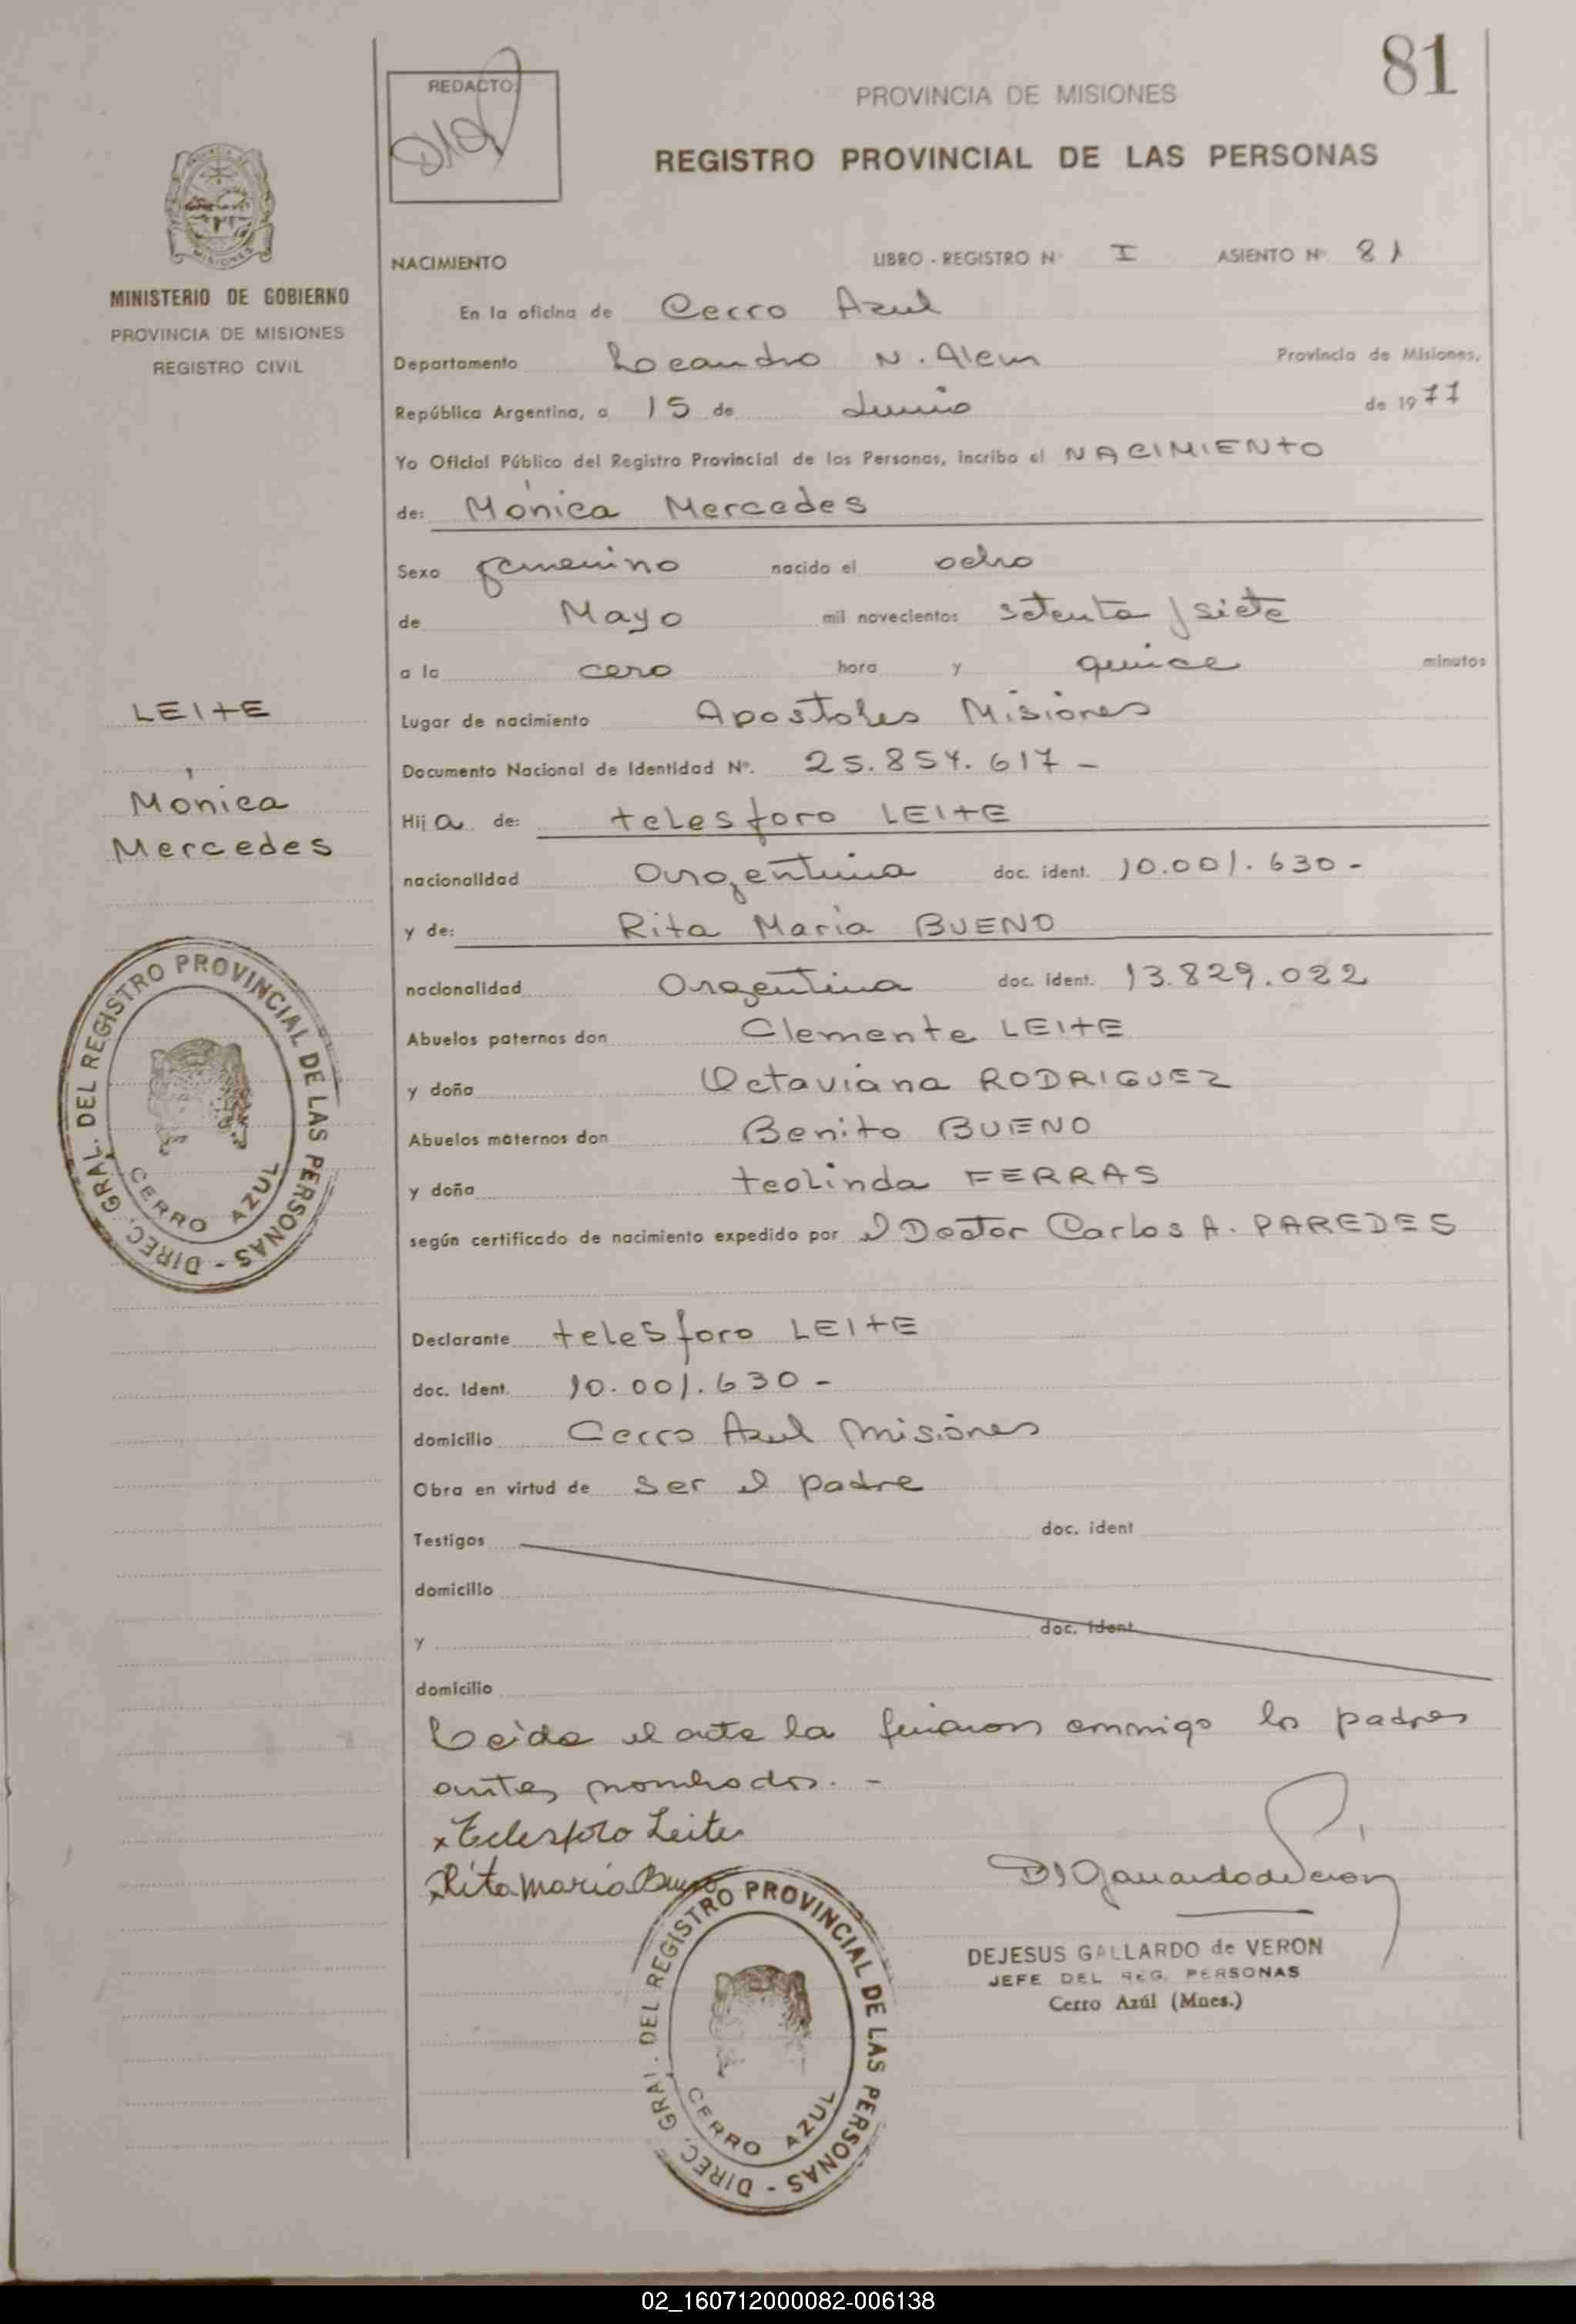 81
REDACTO:
PROVINCIA DE MISIONES
REGISTRO PROVINCIAL DE LAS PERSONAS
MINISTERIO DE GOBIERNO
PROVINCIA DE MISIONES
REGISTRO CIVIL
NACIMIENTO LIBRO - REGISTRO Nº I ASIENTO Nº 81
En la oficina de Cerro Azul
Departamento Leandro N. Alem Provincia de Misiones,
República Argentina, a 15 de Junio de 1977
Yo Oficial Público del Registro Provincial de las Personas, incribo el NACIMIENTO
de: Mónica Mercedes
Sexo femenino nacido el ocho
de Mayo mil novecientos setenta y siete
a la cero hora y quince minutos
Lugar de nacimiento Apostoles Misiones
Documento Nacional de Identidad Nº. 25.854.617 -
Hija de: Telesforo LEITE
nacionalidad Argentina doc. ident. 10.001.630 -
y de: Rita Maria BUENO
nacionalidad Argentina doc. ident. 13.829.022
Abuelos paternos don Clemente LEITE
y doña Octaviana RODRIGUEZ
Abuelos maternos don Benito BUENO
y doña Teolinda FERRAS
según certificado de nacimiento expedido por el Doctor Carlos A. PAREDES
Declarante Telesforo LEITE
doc. Ident. 10.001.630 -
domicilio Cerro Azul Misiones
Obra en virtud de ser el padre
Testigos doc. ident
domicilio
y doc. ident
domicilio
Leida el acta la firman conmigo los padres
antes nombrados. -
x Telesforo Leite
x Rita Maria Bueno
DEJESUS GALLARDO de VERON
JEFE DEL REG. PERSONAS
Cerro Azúl (Mnes.)
LEITE
Mónica
Mercedes
DIREC. GRAL. DEL REGISTRO PROVINCIAL DE LAS PERSONAS -
CERRO AZUL
DIREC. GRAL. DEL REGISTRO PROVINCIAL DE LAS PERSONAS -
CERRO AZUL
02_160712000082-006138